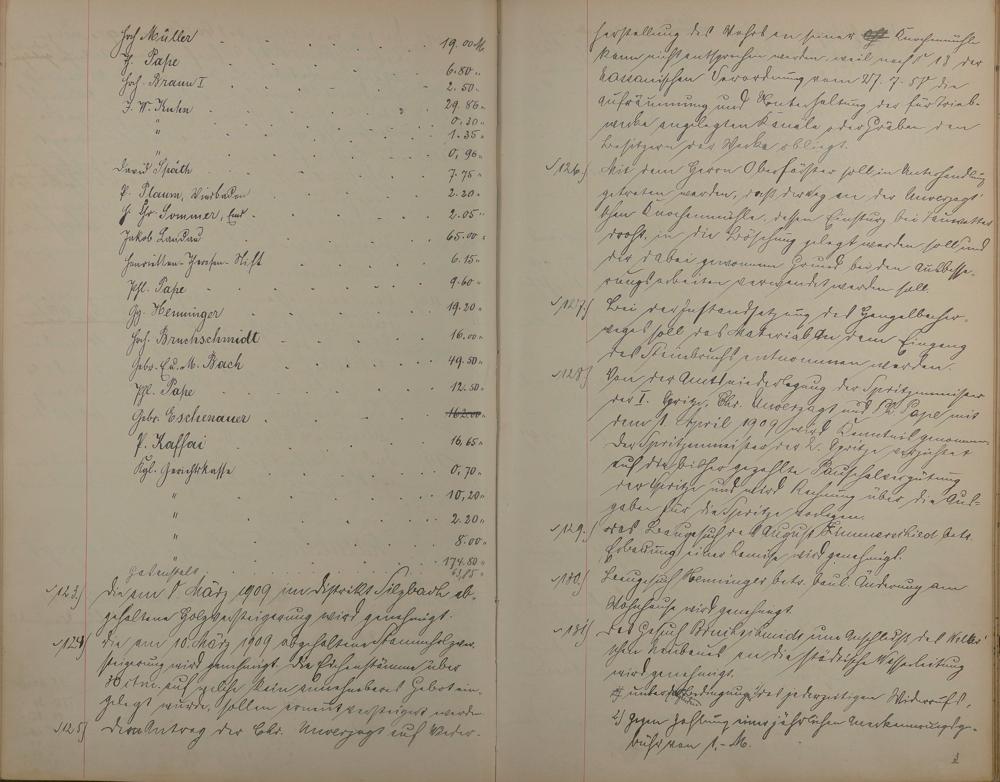 Hch Müller 19.00 M.
H. Pape 6.80 "
Hch. Braun I 2.50 "
J. W. Kuhn 29.86 "
" 0.30 "
" 1.35 "
" 0,96 "
David Späth 7.75 "
P. Plaum, Wiesbaden 2.20 "
H. Chr. Sommer, Ems 2.05 "
Jakob Landau 65.00 "
Henrietten-Theresen-Stift 6.15 "
Phl. Pape 9.60 "
Gg. Henninger 19.20 "
Hch. Bruchschmidt 16.00 "
Gebr. E. u. M. Bach 49.50 "
Phl. Pape 12.50 "
Gebr. Eschenauer 162.00 "
P. Kaffai 16,65 "
Kgl. Gerichtskasse 0,70 "
" 10,20 "
" 2.20 "
" 8.00 "
" 174.50 "
63,85 "
123) Die am 8. März 1909 im Distrikt Silzbach ab-
gehaltene Holzversteigerung wird genehmigt.
124) Die am 10. März 1909 abgehaltene Stammholzver-
steigerung wird genehmigt. Die Eichenstämme über
auf welche kein annehmbares Gebot ein-
gelegt wurde, sollen erneut versteigert werden.
125) Dem Antrag des Chr. Unverzagt auf Wieder-
herstellung des Wehrs an seiner Knochenmühle
kann nicht entsprochen werden, weil nach § 13 der
Nassauischen Verordnung vom 27. 7. 58 die
Aufräumung und Unterhaltung der für Trieb-
werke angelegten Kanäle oder Gräben den
Besitzern der Werke obliegt.
126) Mit dem Herrn Oberförster soll in Unterhandlung
getreten werden, dass der Weg an der Unverzagt-
schen Knochenmühle, dessen Einsturz bei Unwetter
droht, in die Böschung gelegt werden soll und
der dabei gewonnene Grund bei den Ausbesse-
rungsarbeiten verwendet werden soll.
127) Bei der Instandsetzung des Hengelbacher-
weges soll das Material an dem Eingang
des Steinbruchs entnommen werden.
128) Von der Amtsniederlegung der Spritzenmeister
der I. Spritze, Chr. Unverzagt und Ph. Pape mit
dem 1. April 1909 wird Kenntnis genommen.
Der Spritzenmeister der 2. Spritze verzichtet
auf die bisher gezahlte Pauschalvergütung
der Spritze und wird Rechnung über die Aus-
gaben für die Spritze vorlegen.
129) Das Baugesuch des August Zimmerschied betr.
Erbauung einer Remise wird genehmigt.
130) Baugesuch Henninger betr. baul. Änderung am
Wohnhause wird genehmigt.
131) Das Gesuch um Anschluß des
schen Neubaues an die städtische Wasserleitung
wird genehmigt.
1) unter der Bedingung des jederzeitigen Widerrufs,
2) gegen Zahlung einer jährlichen Anerkennungsge-
bühr von 1,- M.